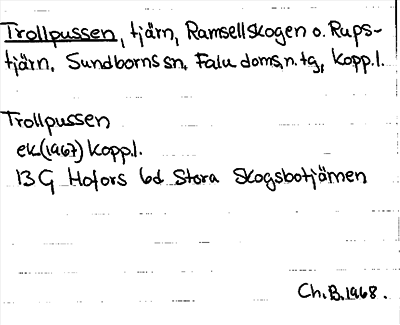 Trollpussen, tjärn, Ramsellskogen o. Rups-
tjärn, Sundborns sn, Falu doms.n.tg, Kopp.l.
Trollpussen
ek(1967) Kopp.l.
13 G Hofors 6d Stora Skogsbotjärnen
Ch.B.1968.